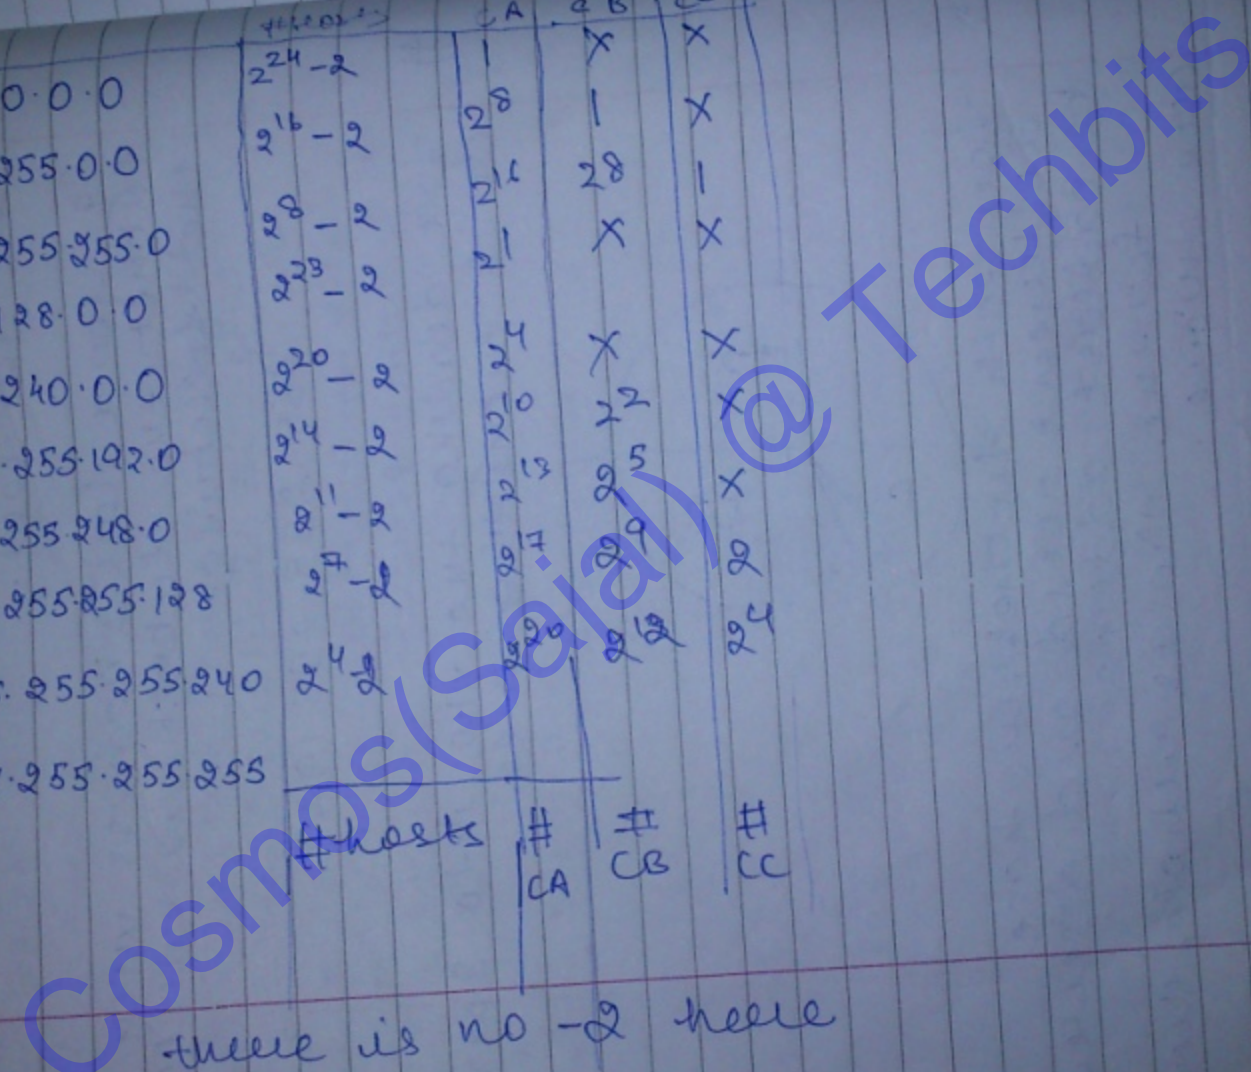 #hosts CA CB
0.0.0 2^24 -2 1 X X
255.0.0 2^16 -2 2^8 1 X
255.255.0 2^8 -2 2^16 2^8 1
128.0.0 2^23 -2 2^1 X X
240.0.0 2^20 -2 2^4 X X
.255.192.0 2^14 -2 2^10 2^2 X
255.248.0 2^11 -2 2^13 2^5 X
255.255.128 2^7 -2 2^17 2^9 2
.255.255.240 2^4 -2 2^20 2^12 2^4
.255.255.255
#hosts # CA # CB # CC
there is no -2 here
Cosmos(Sajal) @ Techbits